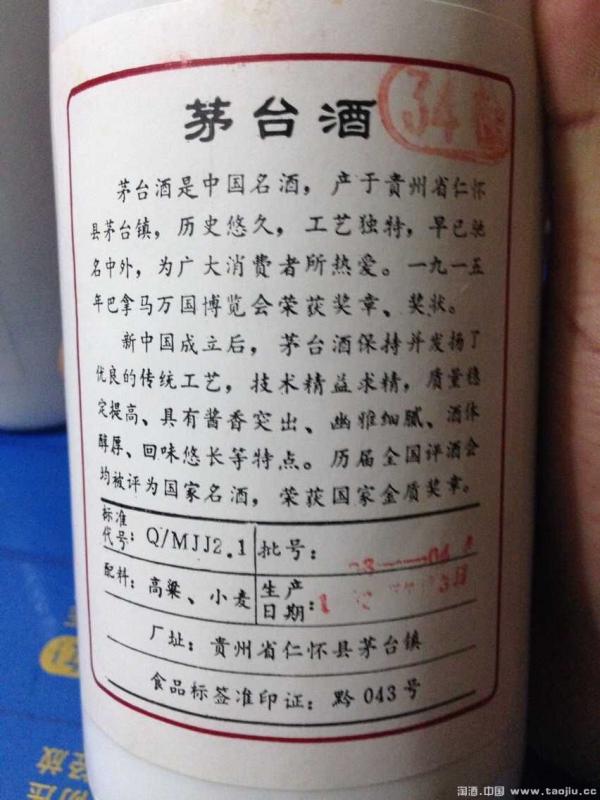 茅台酒
34
茅台酒是中国名酒，产于贵州省仁怀
县茅台镇，历史悠久，工艺独特，早已驰
名中外，为广大消费者所热爱。一九一五
年巴拿马万国博览会荣获奖章、奖状。
新中国成立后，茅台酒保持并发扬了
优良的传统工艺，技术精益求精，质量稳
定提高、具有酱香突出、幽雅细腻、酒体
醇厚、回味悠长等特点。历届全国评酒会
均被评为国家名酒，荣获国家金质奖章。
标准代号：Q/MJJ2.1 批号：
配料：高粱、小麦 生产日期：
厂址：贵州省仁怀县茅台镇
食品标签准印证：黔043号
淘酒.中国 www.taojiu.cc